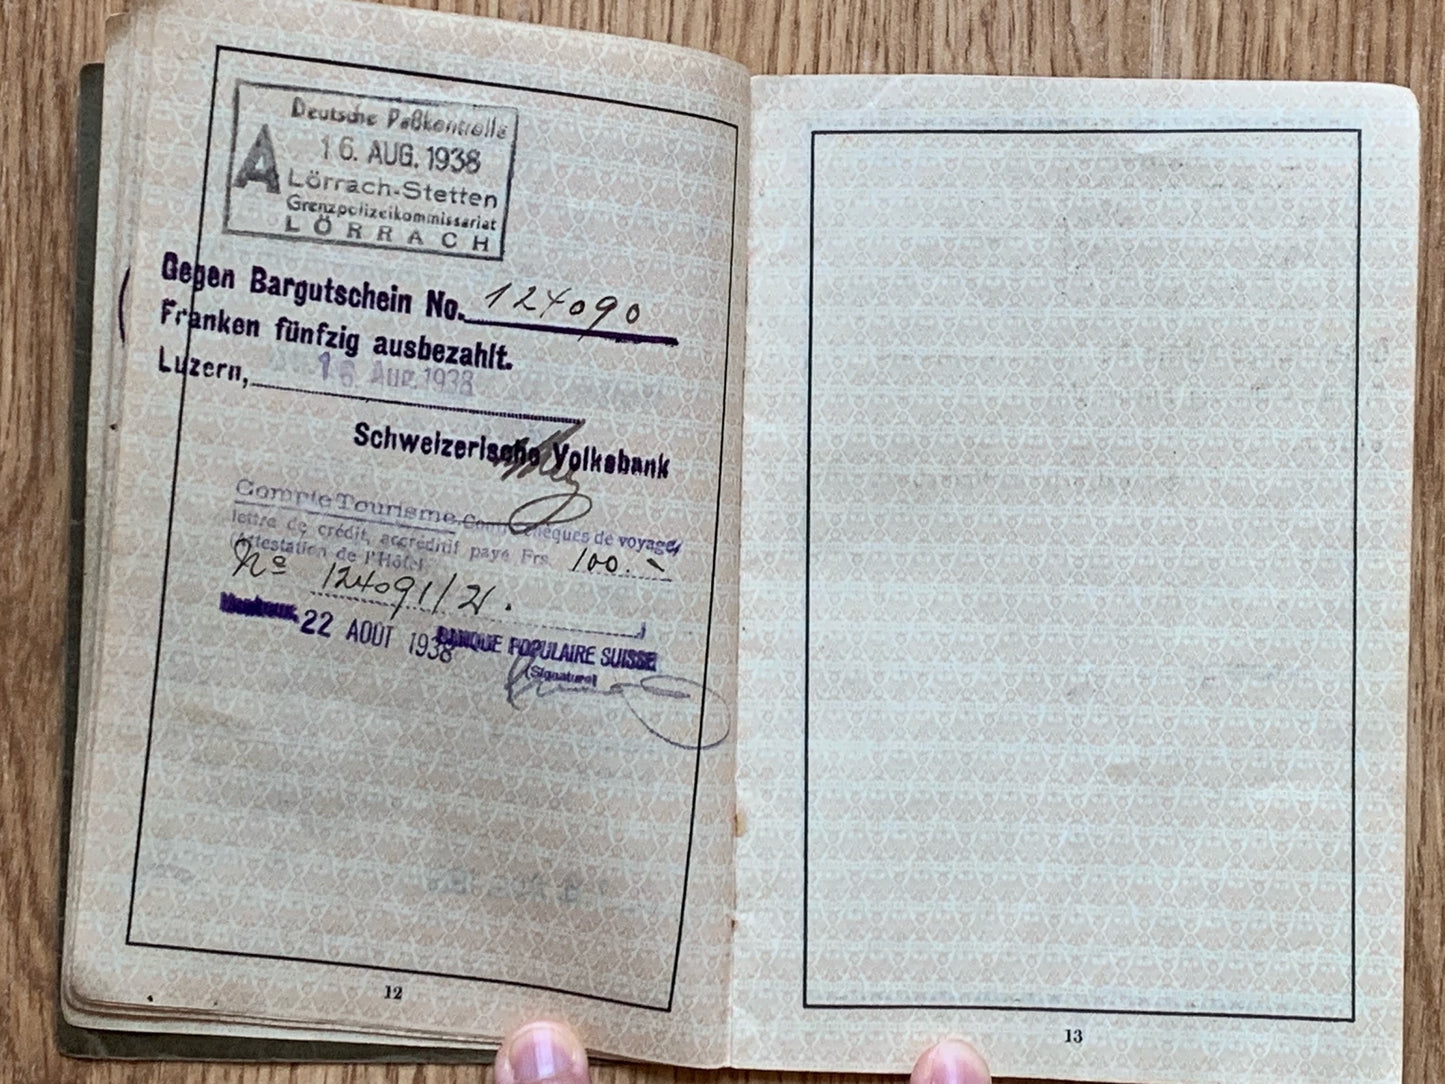 Deutsche Paßkontrolle
16. AUG. 1938
A
Lörrach-Stetten
Grenzpolizeikommissariat
LÖRRACH
Gegen Bargutschein No. 124090
Franken fünfzig ausbezahlt.
Luzern, 16 Aug. 1938
Schweizerische Volksbank
Compte Tourisme. chèques de voyage,
lettre de crédit, accréditif payé Frs. 100.-
(Attestation de l'Hôtel
No 124091/21.
Montreux, 22 AOÛT 1938 BANQUE POPULAIRE SUISSE
(Signature)
12
13